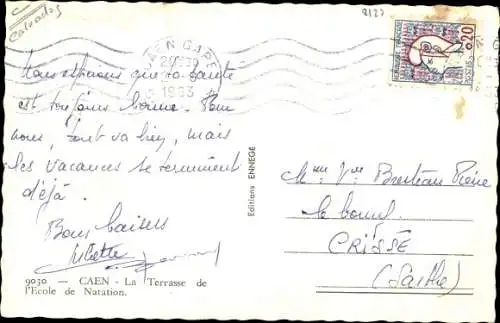 Calvados
8127
CAEN GARE
1963
0,20
Nous espérons que ta santé
est toujours bonne. Pour
nous, tout va bien, mais
les vacances se terminent
déjà.
Bons baisers
Juliette
Editions ENNEGÉ
Mme Vve
le bourg
CRISSÉ
(Sarthe)
9030 — CAEN - La Terrasse de
l'Ecole de Natation.